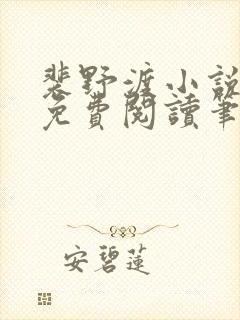 裴野渡小說
免費閱讀筆
安碧蓮